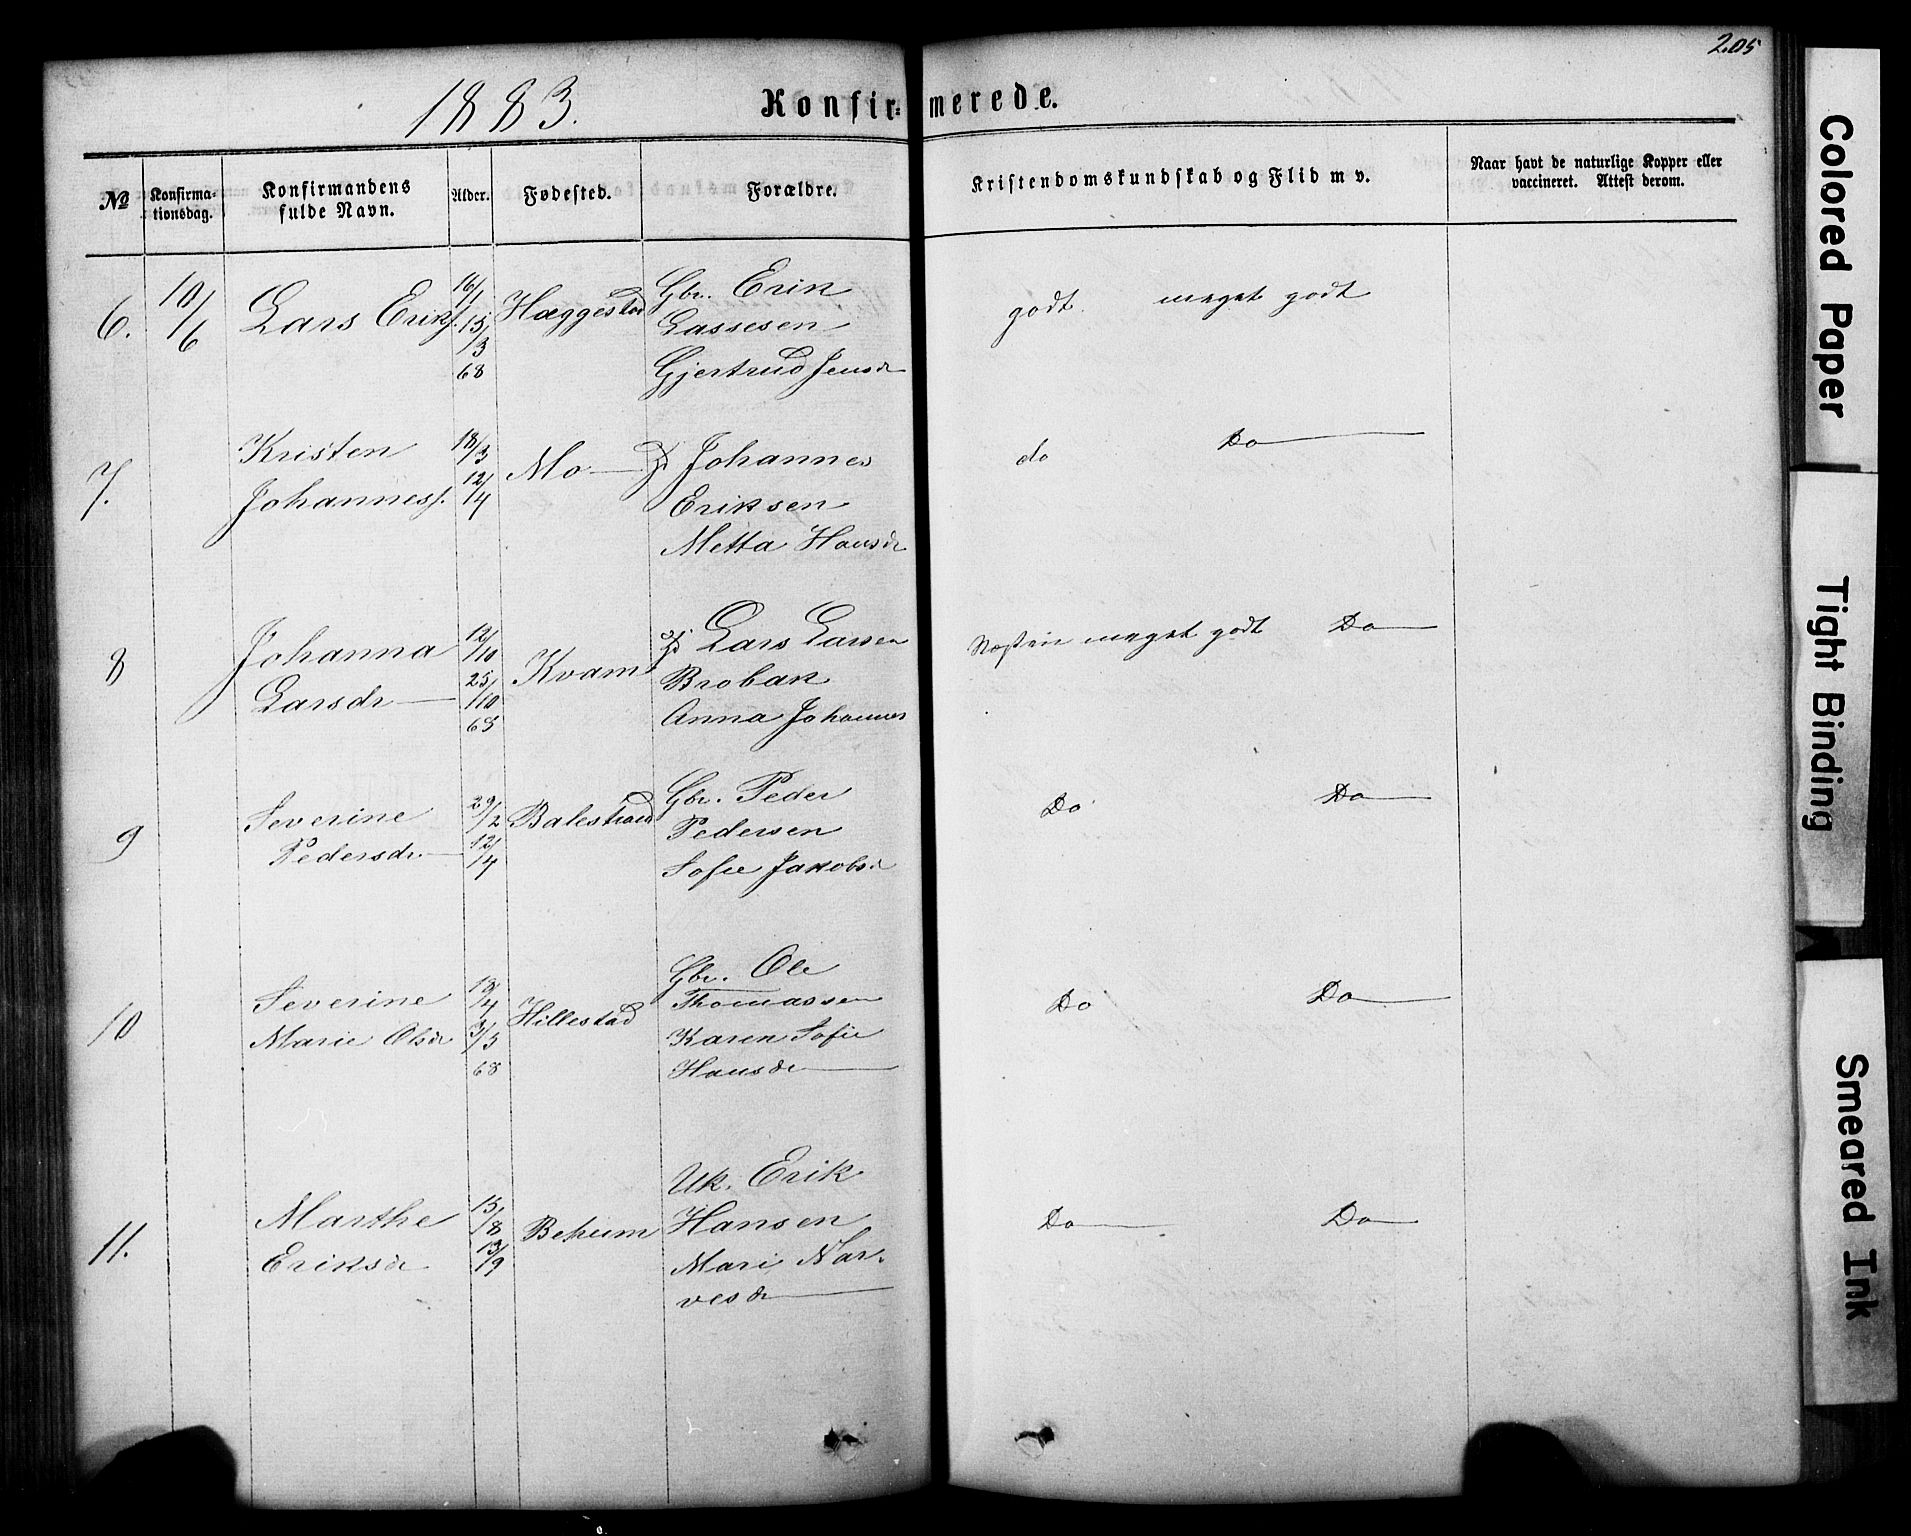 205
1883.
Konfir=merede.
№
Konfirma-
tionsdag.
Konfirmandens
fulde Navn.
Alder.
Fødested.
Forældre.
Kristendomskundskab og Flid m v.
Naar havt de naturlige Kopper eller
vaccineret. Attest derom.
6.
10/6
Lars Eriks.
16/1
15/3
68
Hæggestad
Gbr. Erik
Lassesen
Gjertrud Jensdr
godt. meget godt
7.
Kristen
Johanness.
18/3
12/4
Mo
Johannes
Eriksen
Metta Hansdr
do Do
8
Johanna
Larsdr
12/10
25/10
Kvam
Lars Larsen
Brobak
Anna Johannes
meget godt Do
9
Severine
Pedersdr.
29/2
12/4
Balestrand
Gbr. Peder
Pedersen
Sofie Jakobsd
Do Do
10
Severine
Marie Olsdr
19/4
3/5
68
Hillestad
Gbr. Ole
Thomassen
Karen Sofie
Hansdr
Do Do
11.
Marthe
Eriksdr
15/8
13/9
Uk. Erik
Hansen
Mari Nar-
vesdr
Do Do
Colored Paper
Tight Binding
Smeared Ink